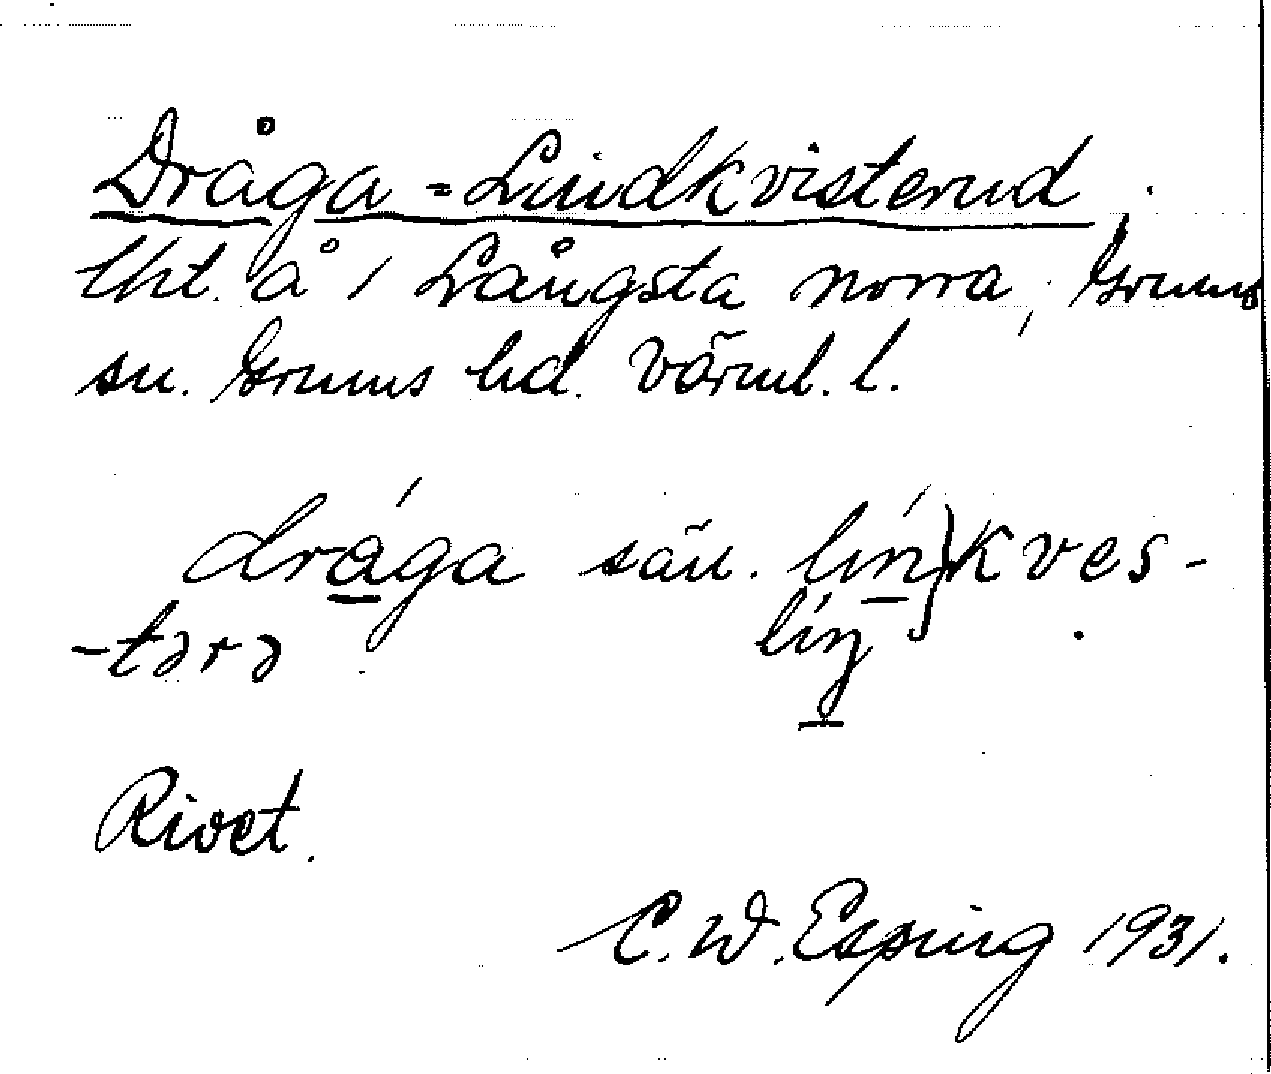 Dråga = Lindkvisterud,
lht. å 1 Långsta norra, Grums
sn. Grums hd. Värml. l.
drága sän. lín} kves-
-tərə líŋ
Rivet.
C. W. Esping 1931.